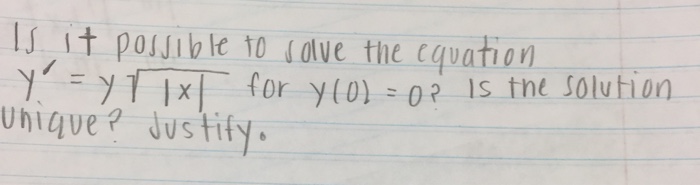 Is it possible to solve the equation
y' = y√|x| for y(0) = 0? Is the solution
unique? Justify.